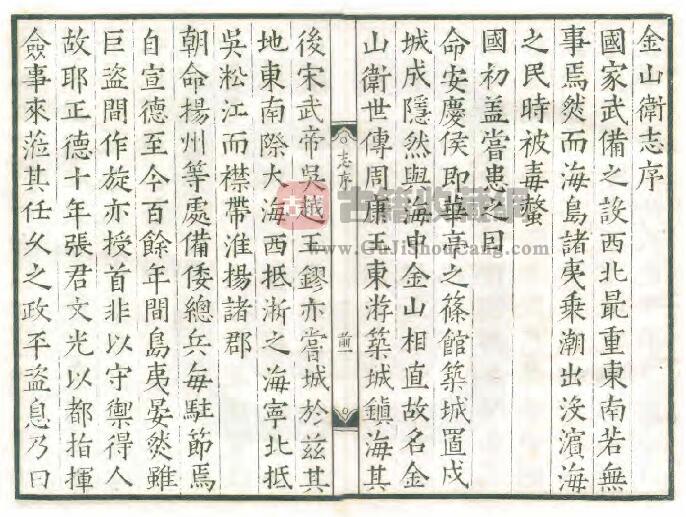 金山衛志序
國家武備之設西北最重東南若無
事焉然而海島諸夷乗潮出没濵海
之民時被毒螫
國初盖嘗患之曰
命安慶侯即華亭之篠館築城置戍
城成隱然與海中金山相直故名金
山衛世傳周康王東游築城鎮海其
志序
前一
後宋武帝吳越王鏐亦嘗城於兹其
地東南際大海西抵浙之海寧北抵
吳松江而襟帶淮揚諸郡
朝命揚州等處備倭總兵每駐節焉
自宣德至今百餘年間島夷晏然雖
巨盗間作旋亦授首非以守禦得人
故耶正德十年張君文光以都指揮
僉事來蒞其任久之政平盗息乃曰
古籍收藏網
www.GuJiShouCang.com